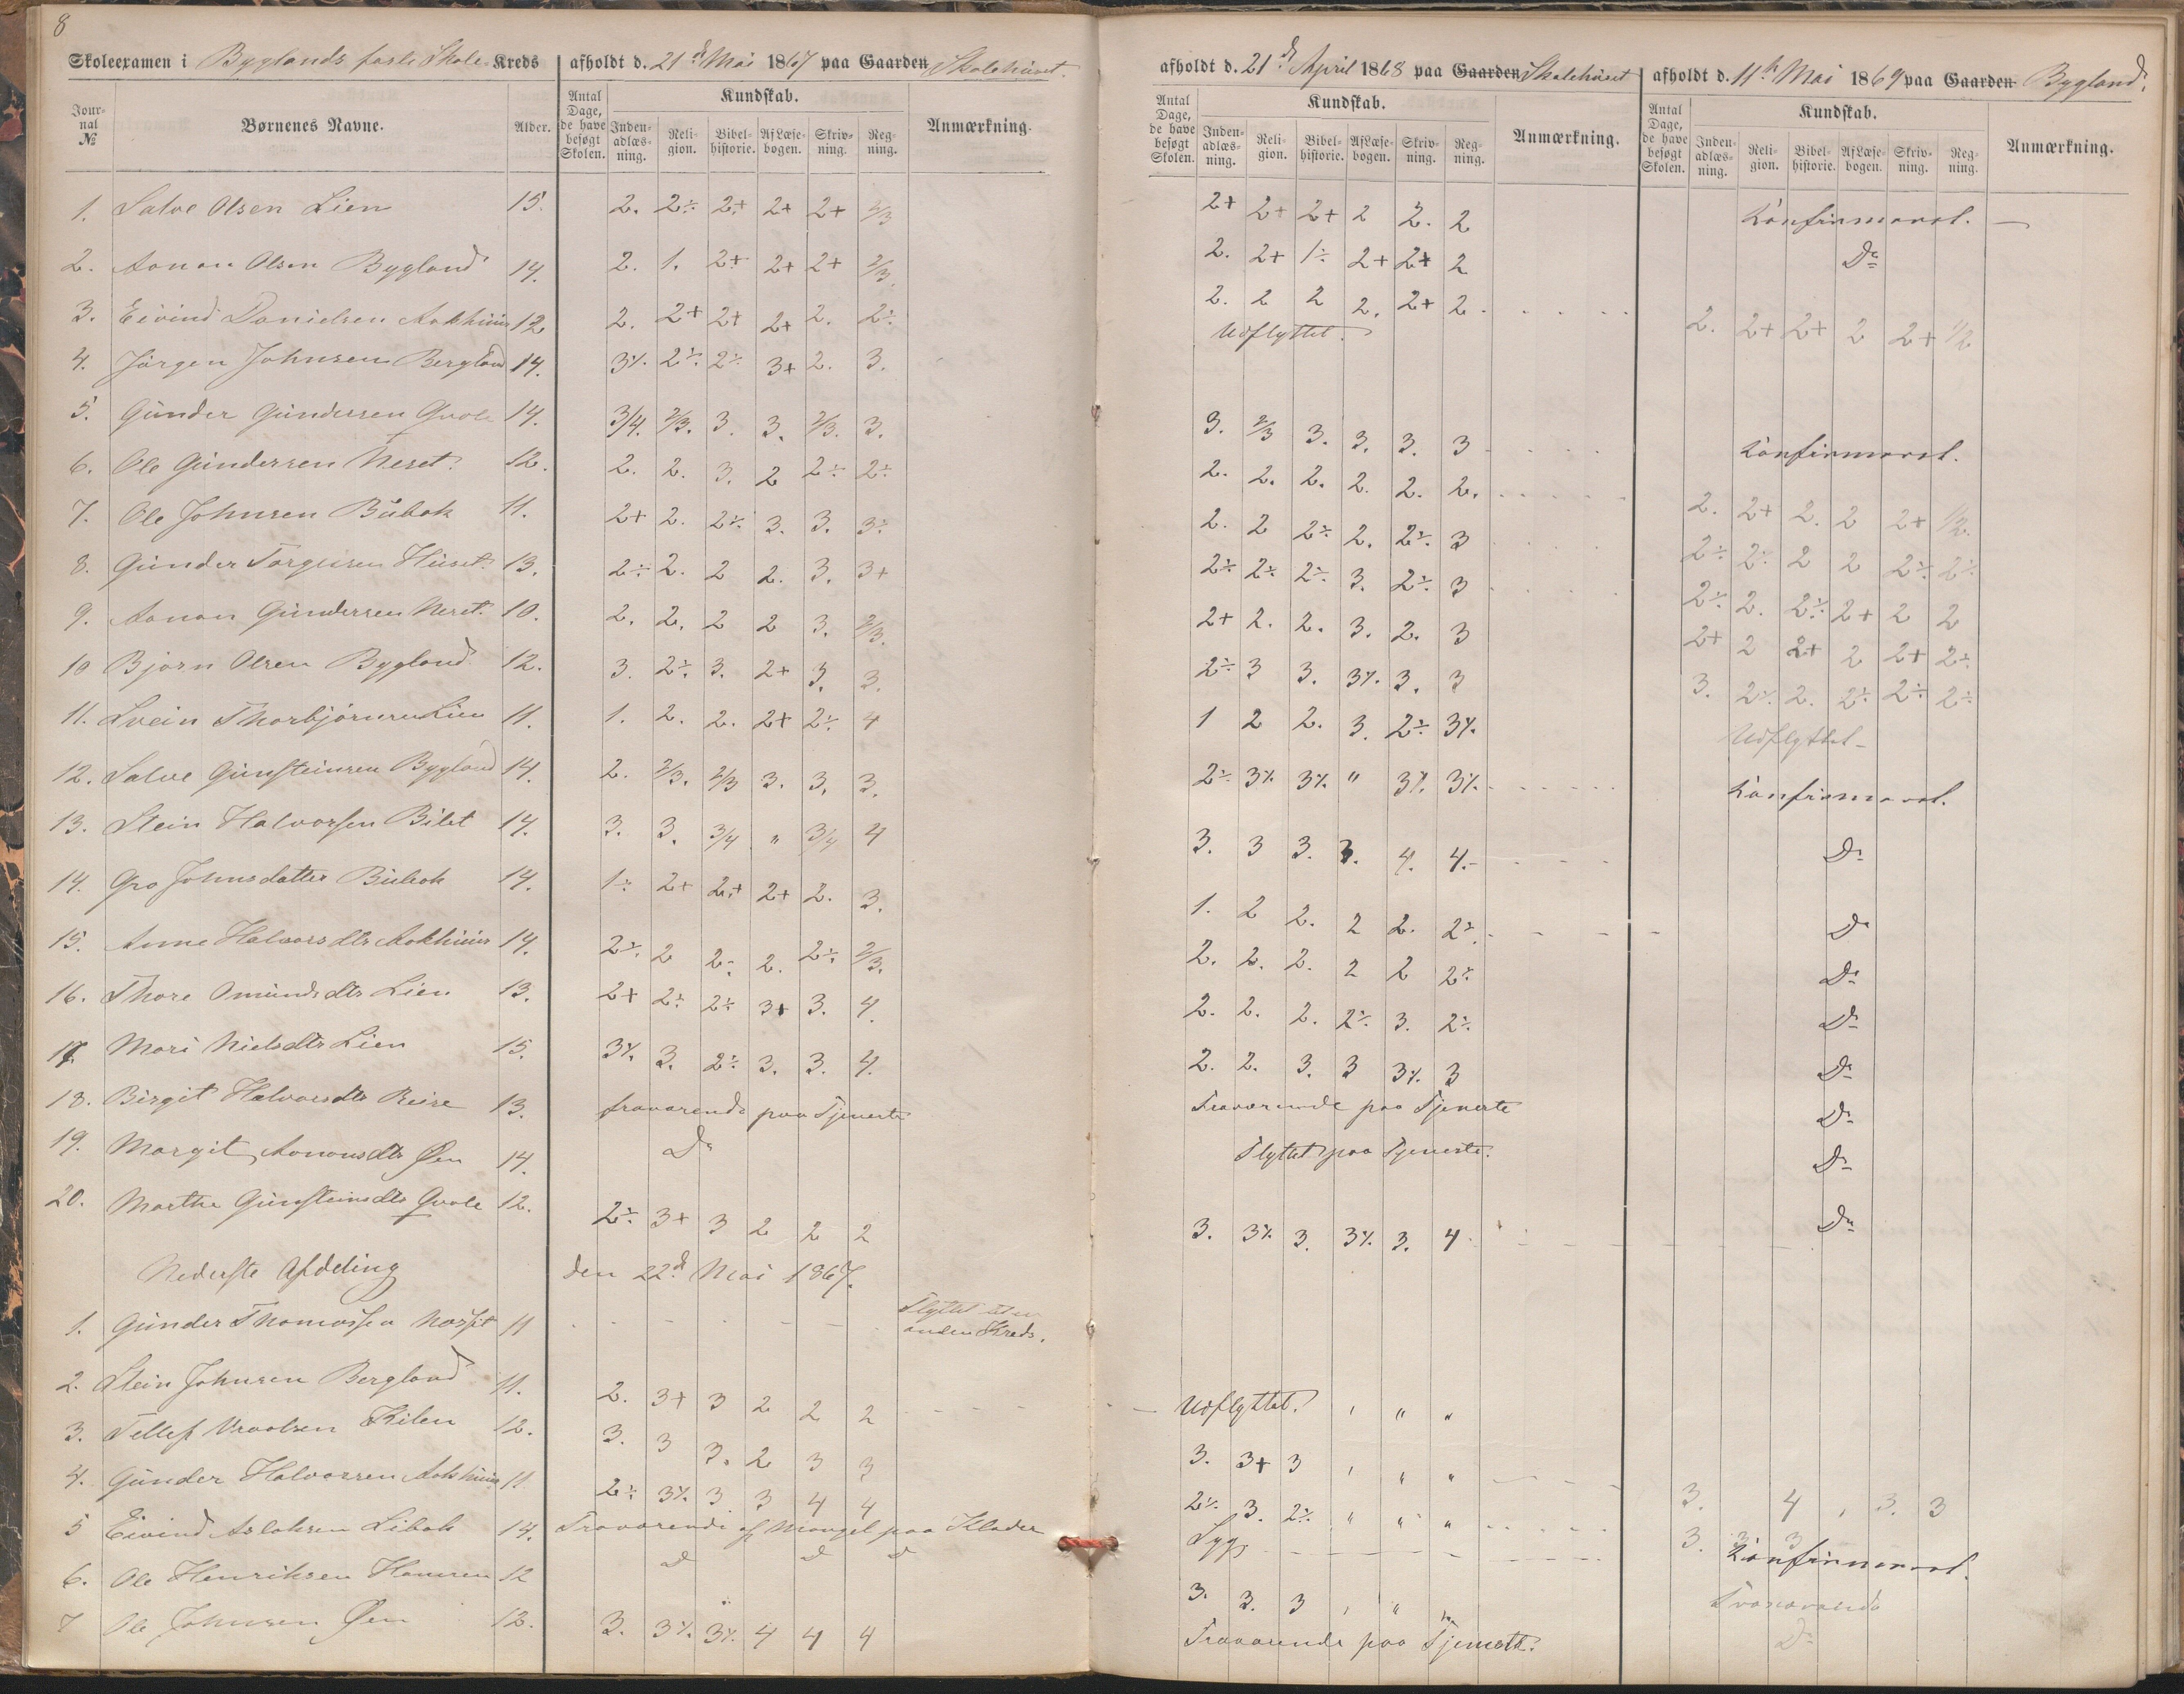 8
Skoleexamen i Byglands faste Skole Kreds afholdt d. 21de Mai 1867 paa Gaarden Skolehuset.
Journal No
Børnenes Navne. Alder. Antal Dage, de have besøgt Skolen. Kundskab. Anmærkning.
Indenadlæsning. Religion. Bibelhistorie. Af Læsebogen. Skrivning. Regning.
1. Salve Olsen Lien 15. 2. 2÷ 2+ 2+ 2+ 2/3
2. Aanon Olsen Bygland 14. 2. 1. 2+ 2+ 2+ 2/3.
3. Eivind Danielsen Aakhuus 12 2. 2+ 2+ 2+ 2. 2÷
4. Jörgen Johnsen Bergland 14. 3÷ 2÷ 2÷ 3+ 2. 3.
5. Gunder Gundersen Qvale 14. 3/4. 2/3. 3. 3. 2/3. 3.
6. Ole Gundersen Neset. 12. 2. 2. 3. 2 2÷ 2÷
7. Ole Johnsen Bubak 11. 2+ 2. 2÷ 3. 3. 3÷
8. Gunder Torgersen Huset. 13. 2÷ 2. 2 2. 3. 3+
9. Aanon Gundersen Neset. 10. 2. 2. 2 2 3. 2/3.
10 Bjørn Olsen Bygland 12. 3. 2÷ 3. 2+ 3. 3.
11. Svein Thorbjörnsen Lien 11. 1. 2. 2. 2+ 2÷ 4
12. Salve Gunsteinsen Bygland 14. 2. 2/3. 2/3 3. 3. 3.
13. Stein Halvorsen Bilet 14. 3. 3. 3/4 " 3/4 4
14. Gro Johnsdatter Bubak 14. 1÷ 2+ 2+ 2+ 2. 3.
15. Anne Halvorsdtr Aakhuus 14. 2÷ 2 2÷ 2. 2÷ 2/3.
16. Thore Omundsdtr Lien 13. 2+ 2÷ 2÷ 3+ 3. 4.
17. Mari Nielsdtr Lien 15. 3÷ 3. 2÷ 3. 3. 4.
18. Birgit Halvorsdtr Reise 13. fraværende paa Tjeneste
19. Margit Aanonsdtr Øen 14. Do
20. Marthe Gunsteinsdtr Qvale 12. 2÷ 3+ 3 2 2 2
Nederste Afdeling den 22de Mai 1867.
1. Gunder Thomassen 11 Flyttet til en anden Kreds.
2. Stein Johnsen Bergland 11. 2. 3+ 3 2 2 2
3. Tellef Kilen 12. 3. 3 3. 2 3 3
4. Gunder Halvorsen Aakhuus 11 2÷ 3÷ 3 3 4 4
5 Eivind Aslaksen Libak 14. Fraværende af Mangel paa Klæder
6. Ole Henriksen 12 Do Do Do
7 Ole Johnsen Øen 12. 3. 3÷ 3÷ 4 4 4
afholdt d. 21de April 1868 paa Gaarden Skolehuset
Antal Dage, de have besøgt Skolen. Kundskab. Anmærkning.
Indenadlæsning. Religion. Bibelhistorie. Af Læsebogen. Skrivning. Regning.
2+ 2+ 2+ 2 2. 2
2. 2+ 1÷ 2+ 2+ 2
2. 2 2 2. 2+ 2.
Udflyttet.
3. 2/3 3. 3. 3. 3
2. 2. 2. 2. 2. 2.
2. 2 2÷ 2. 2÷ 3
2÷ 2÷ 2÷ 3. 2÷ 3
2+ 2. 2. 3. 2. 3
2÷ 3 3. 3÷ 3. 3
1 2 2. 3. 2÷ 3÷
2÷ 3÷ 3÷ " 3÷ 3÷
3. 3 3. 3. 4. 4.
1. 2 2. 2 2. 2÷
2. 2. 2. 2 2 2÷
2. 2. 2. 2÷ 3. 2÷
2. 2. 3. 3 3÷ 3
Fraværende paa Tjeneste
Flyttet paa Tjeneste.
3. 3÷ 3. 3÷ 3. 4
Udflyttet. " "
3. 3+ 3 " "
2÷ 3. 2÷ " " "
Syg
3. 3. 3 "
Fraværende paa Tjeneste.
afholdt d. 11te Mai 1869 paa Gaarden Bygland.
Antal Dage, de have besøgt Skolen. Kundskab. Anmærkning.
Indenadlæsning. Religion. Bibelhistorie. Af Læsebogen. Skrivning. Regning.
Konfirmeret.
Do
2. 2+ 2+ 2 2+ 1/2
Konfirmeret.
2. 2+ 2. 2 2+ 1/2.
2÷ 2÷ 2 2 2÷ 2÷
2÷ 2. 2÷ 2+ 2 2
2+ 2 2+ 2 2+ 2÷
3. 2÷ 2. 2÷ 2÷ 2÷
Udflyttet
Konfirmeret.
Do
Do
Do
Do
Do
Do
Do
Do
3. 4 3. 3
3. 3 3
Konfirmeret.
Fraværende
Do